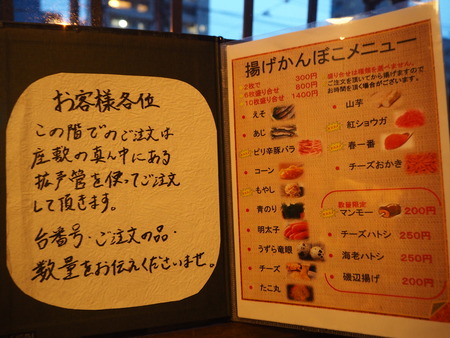 お客様各位
この階でのご注文は
座敷の真ん中にある
拡声管を使ってご注文
して頂きます。
台番号・ご注文の品・
数量をお伝えくださいませ。
揚げかんぼこメニュー
2枚で 300円
6枚盛り合せ 800円
10枚盛り合せ 1400円
盛り合せは種類を選べません。
ご注文を頂いてから揚げますので
お時間を頂く場合がございます。
えそ
あじ
ピリ辛豚バラ
コーン
もやし
青のり
明太子
うずら竜眼
チーズ
たこ丸
山芋
紅ショウガ
春一番
チーズおかき
数量限定
マンモー 200円
チーズハトシ 250円
海老ハトシ 250円
磯辺揚げ 200円